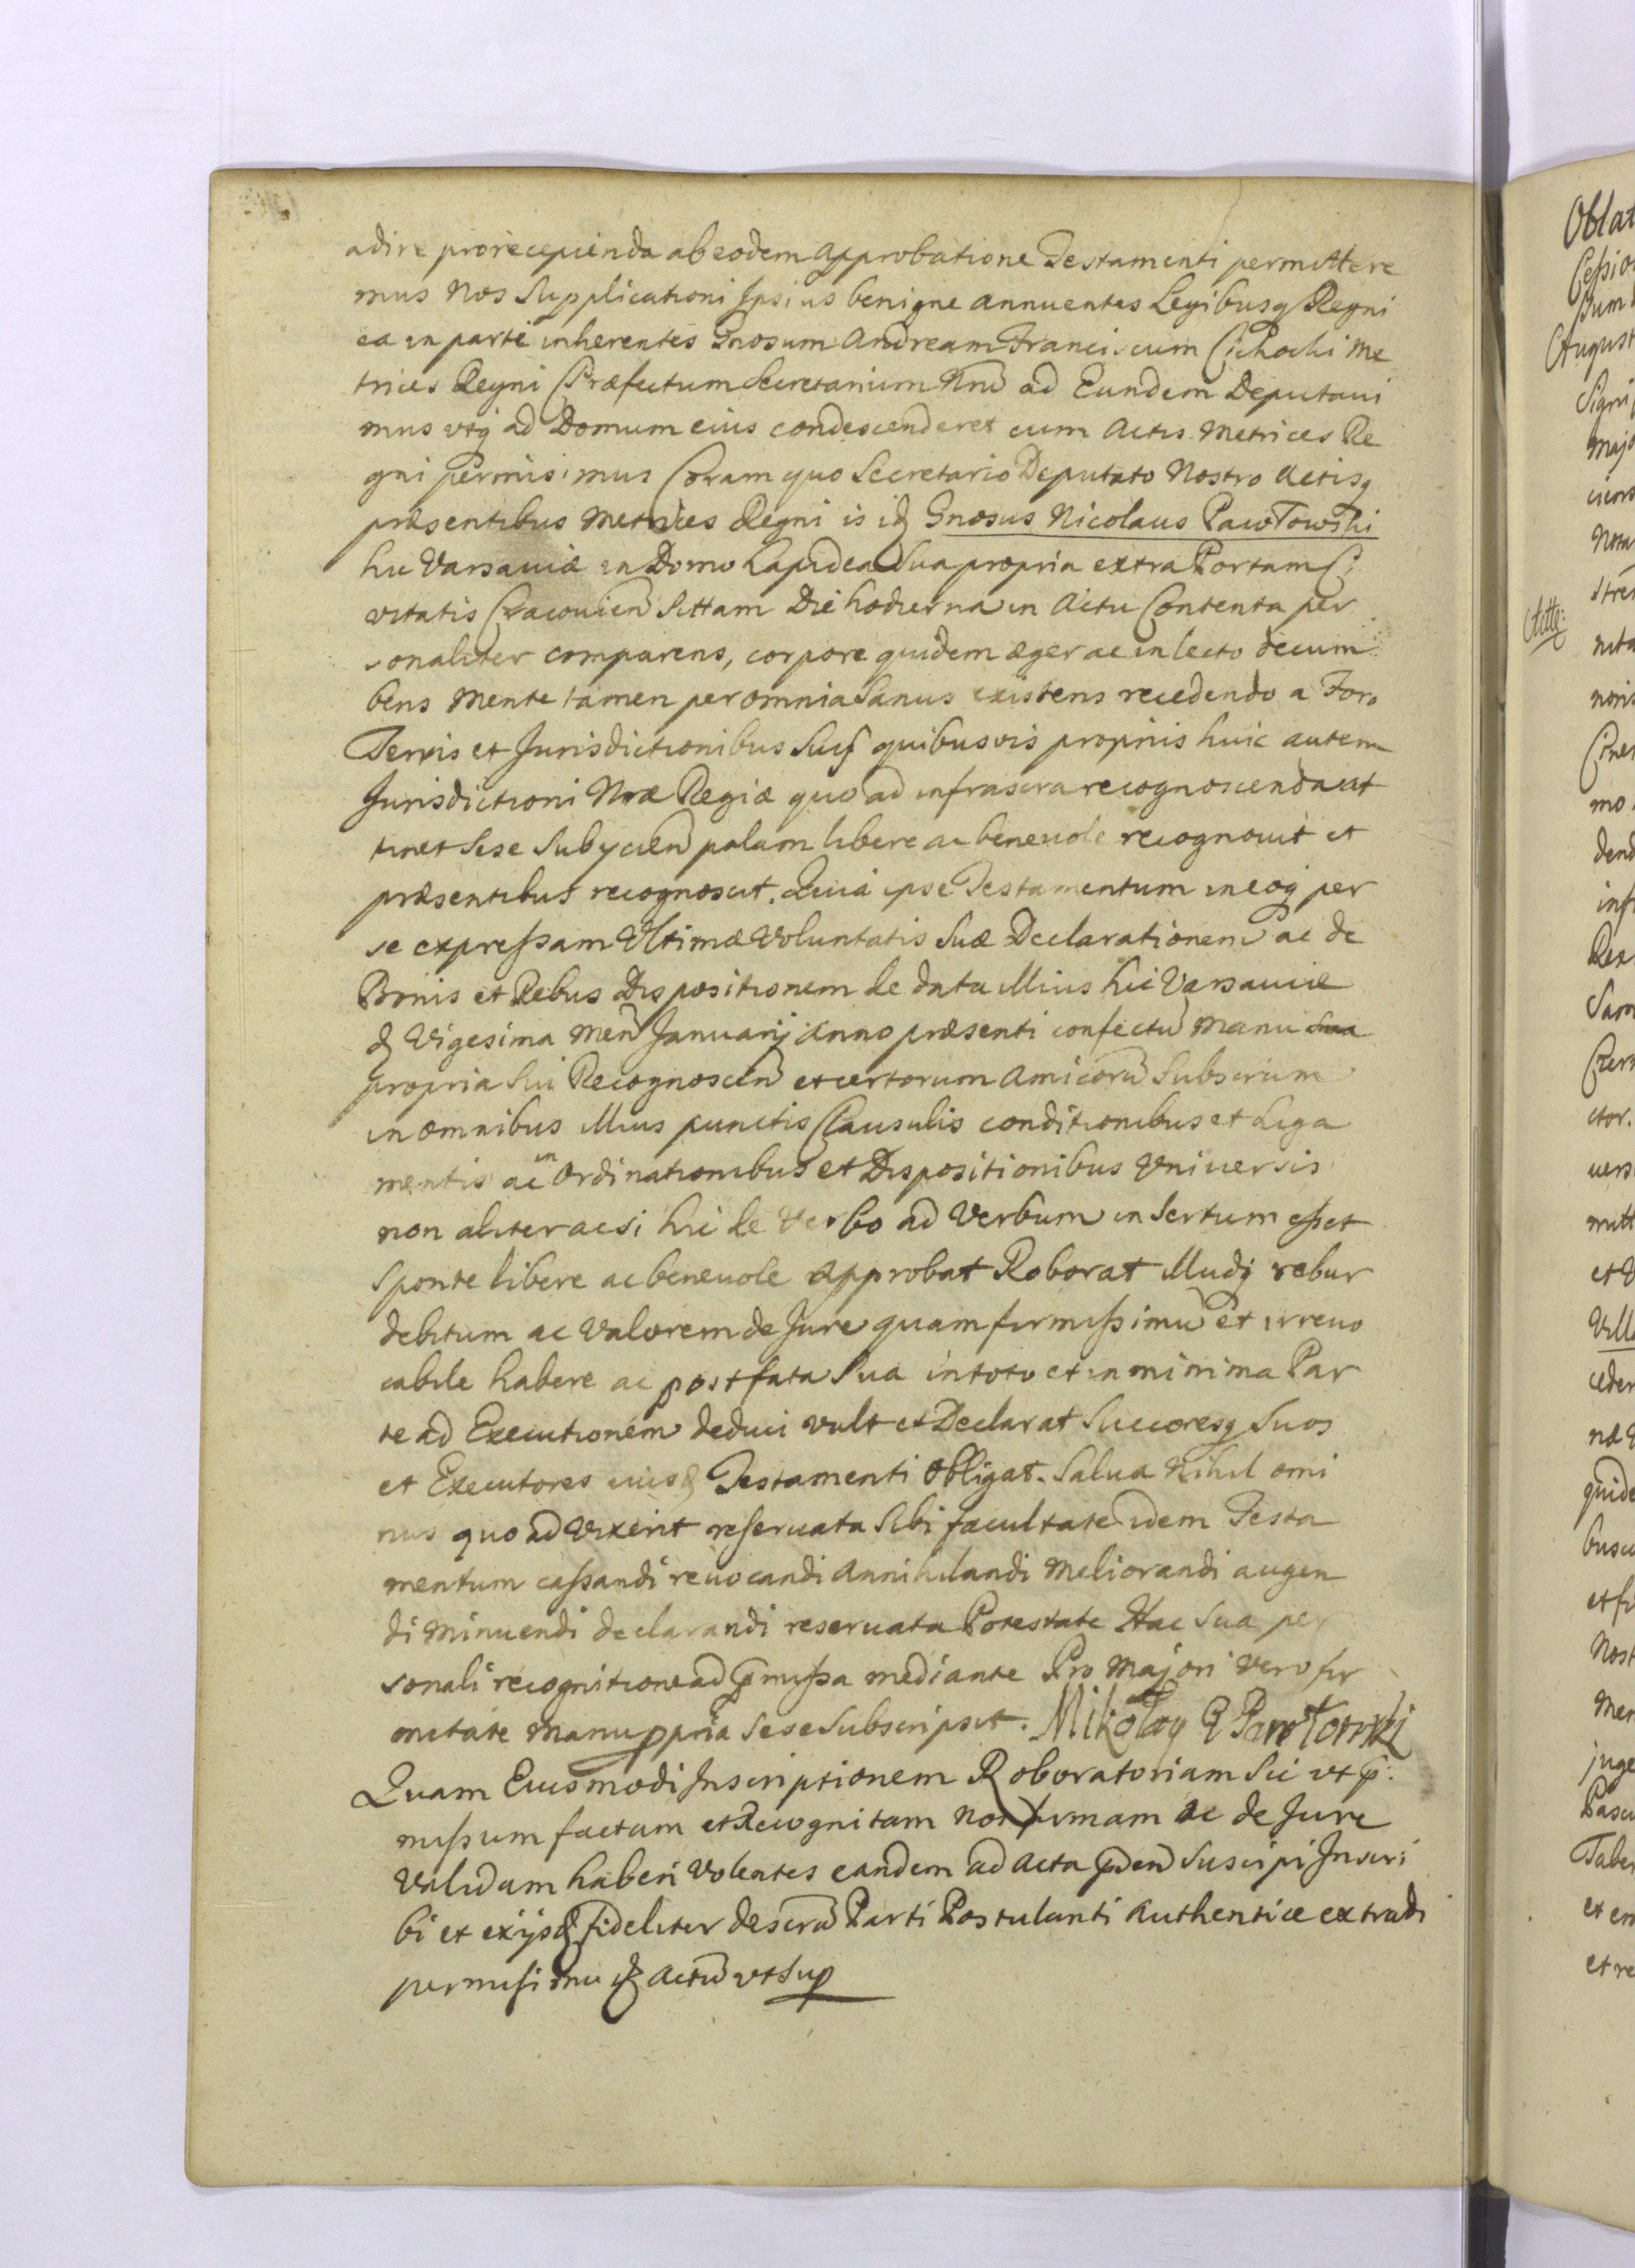 adire pro recepienda ab eodem approbatione Testamenti permittere
mus Nos Supplicationi Ipsius benigne annuentes Legibusq Regni
ea in parte inherentes Gnosum Andream Franciscum Cichocki Me
trices Regni Præfectum Secretarium Nrm̃ ad Eundem Deputavi
mus vtq ad Domum eius condescenderet cum Actis Metrices Re
gni permisimus Coram quo Secretario Deputato Nostro Actisq
præsentibus Metrices Regni is idq Gnosus Nicolaus Pawłowski
hic Varsaviæ in Domo Lapidea Sua propria extra Portam Ci
vitatis Cracovien̄ sittam Die hodierna in Actu Contenta per
sonaliter comparens, corpore quidem æger ac in lecto decum
bens Mente tamen per omnia Sanus existens recedendo a Foro
Terris et Jurisdictionibus Suis quibusvis proprijs huic autem
Jurisdictioni Nræ Regiæ quo ad infrascra recognoscenda at
tinet Sese Subijcien̄ palam libere ac benevole recognovit et
præsentibus recognoscit. Quia ipse Testamentum in eoq per
se expressam Vltimæ Voluntatis Suæ Declarationem ac de
Bonis et Rebus Dispositionem de data illius hic Varsaviæ
d Vigesima Men̄ Januarij Anno præsenti confectū Manu Sua
propria Sui Recognoscen̄ et certorum Amicorū Subscrium
in omnibus illius punctis Clausulis conditionibus et Liga
mentis ac in Ordinationibus et Dispositionibus Vniversis
non aliter ac si hic de Verbo ad Verbum insertum esset
Sponte libere ac benevole Approbat Roborat Illudq robur
debitum ac Valorem de Jure quam firmissimū et irrevo
cabile habere ac post fata Sua in toto et in minima Par
te ad Executionem deduci vult et Declarat Succoresq Suos
et Executores eiusd Testamenti obligat. Salva Nihil omi
nus quo ad Vixerit reservata Sibi facultate idem Testa
mentum cassandi revocandi Annihilandi Meliorandi augen
di Minuendi declarandi reservata Potestate Hac Sua per
sonali recognitione ad p̄missa mediante Pro Majori vero fir
mitate Manu ppria Sese Subscripsit. Mikołay P Pawłowski
Quam Eiusmodi Inscriptionem Roboratoriam Sic vt p̄:
missum factam et Recognitam Nos firmam ac de Jure
Validam haberi Volentes eandem ad Acta p̄den̄ Suscipi Inscri
bi et ex ijsd fideliter descrā Parti Postulanti Authentice extradi
permisimu Actū vt Sup